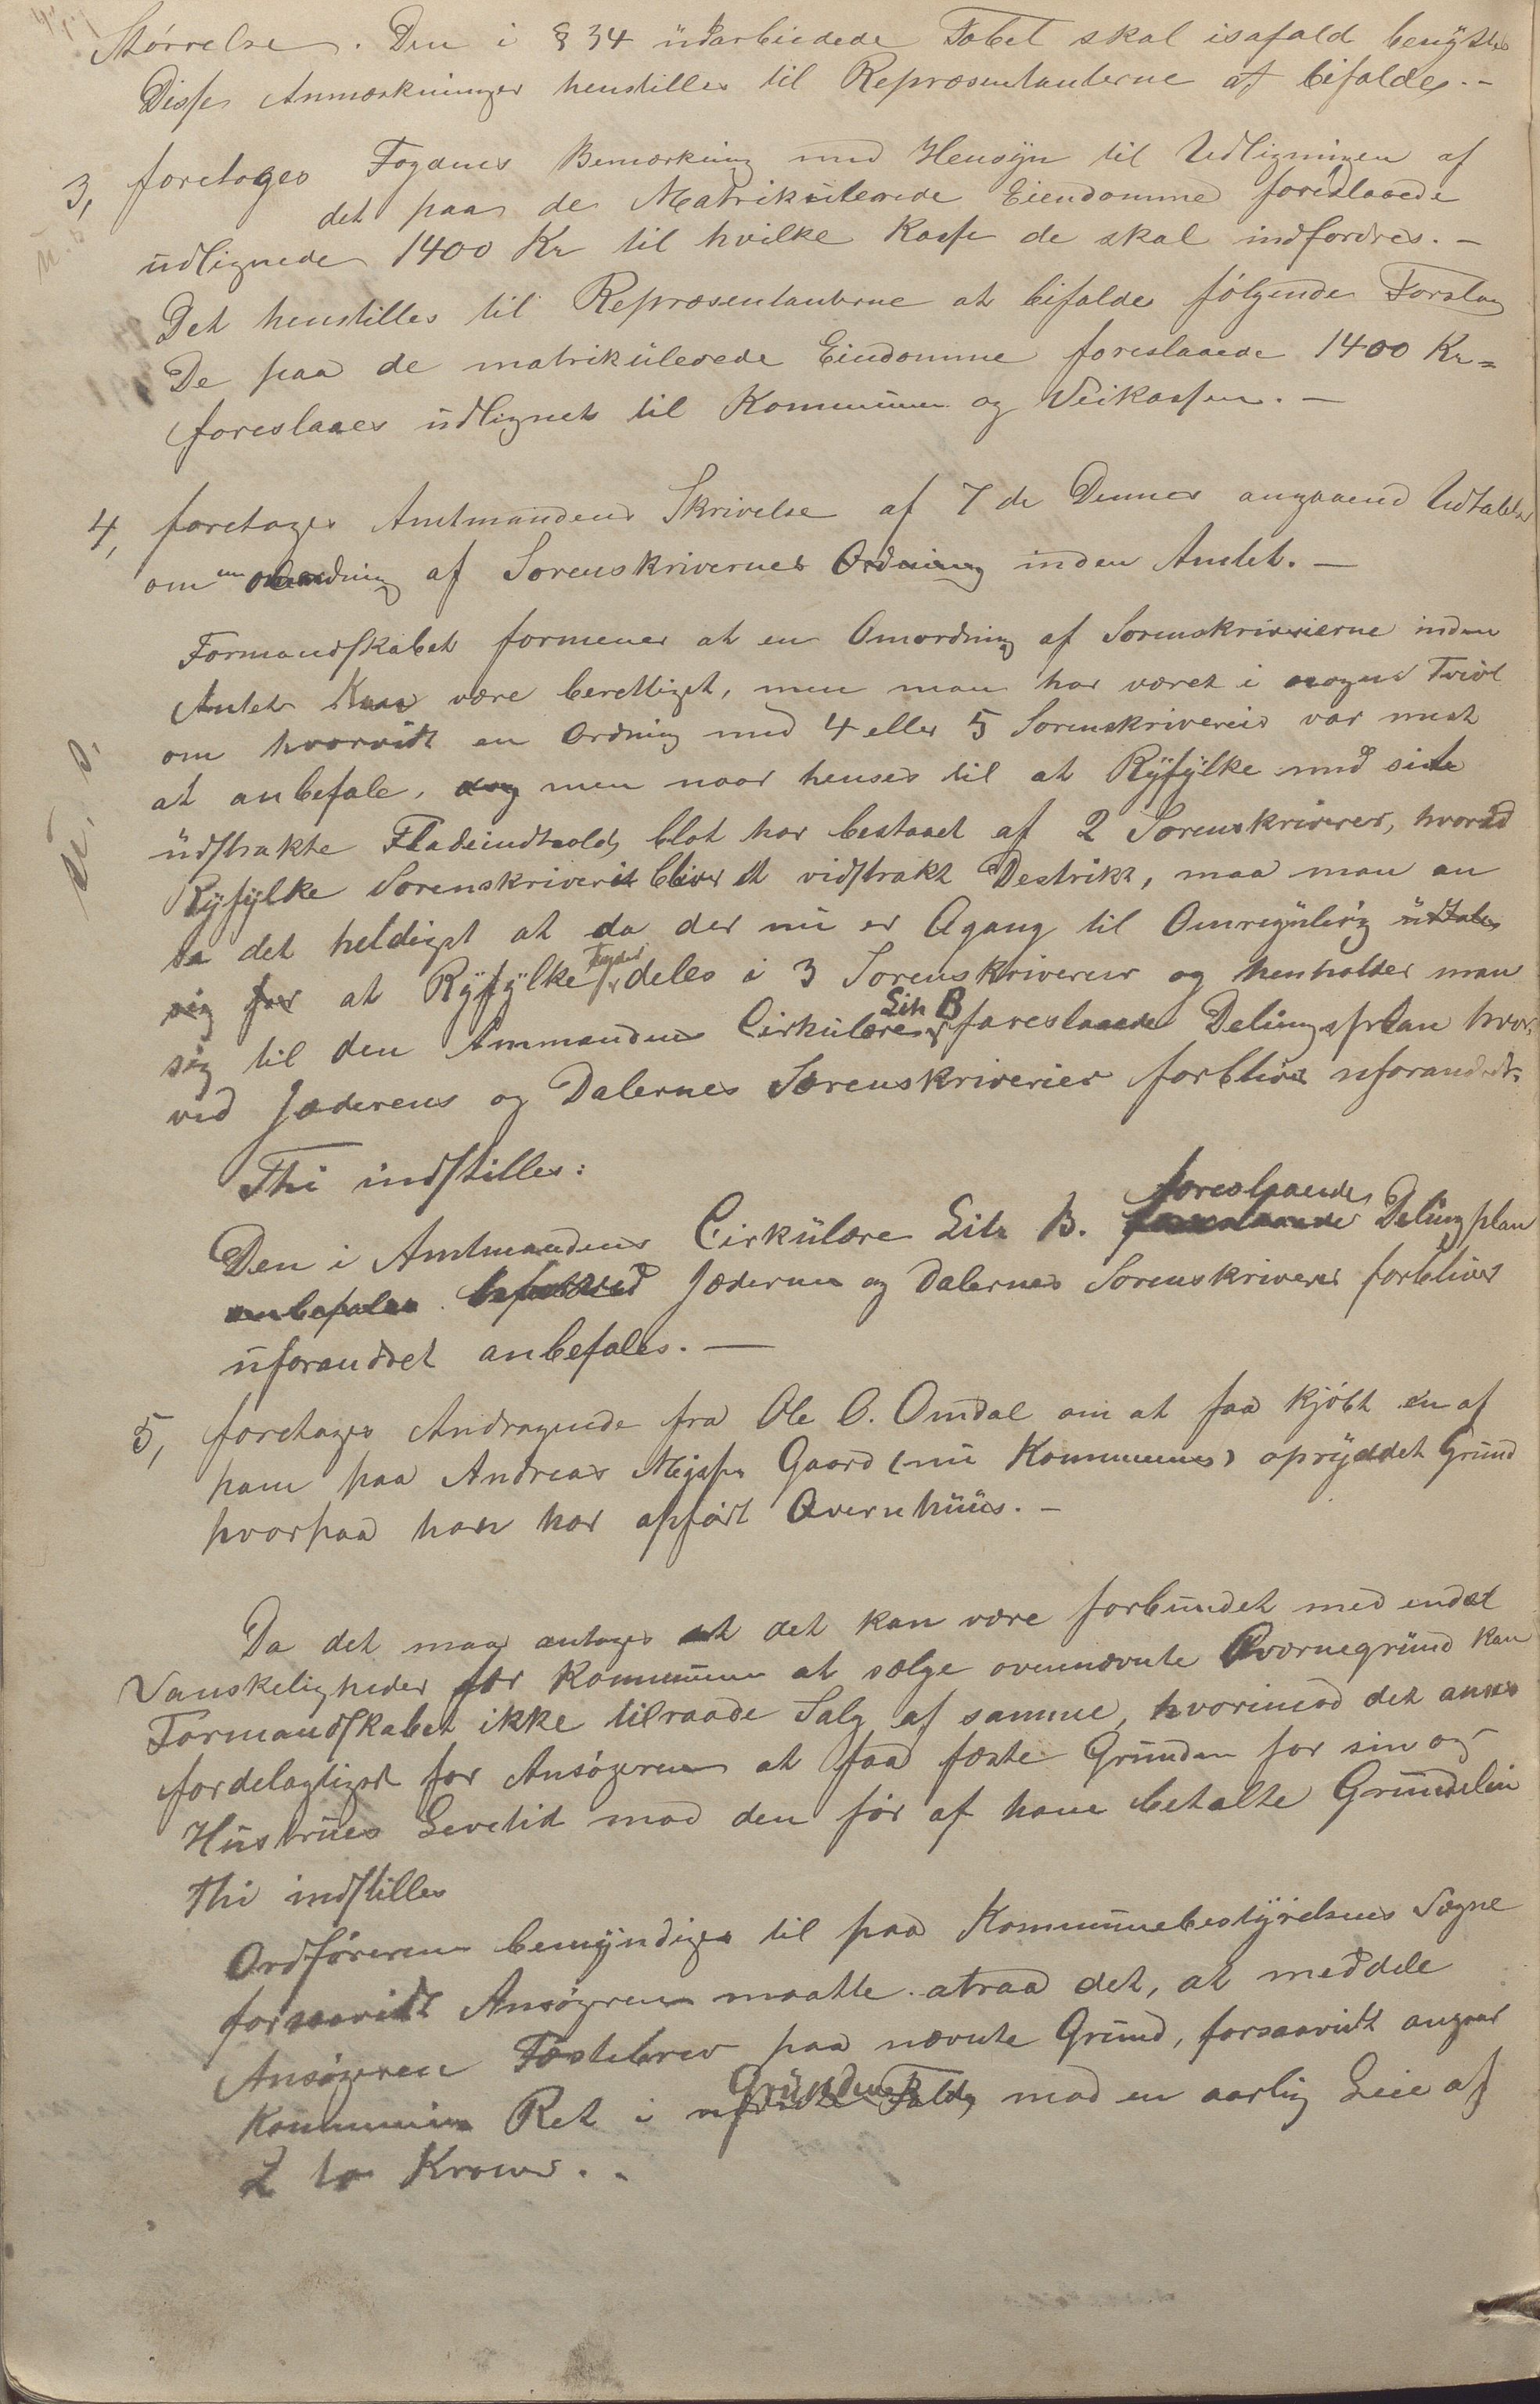 Størrelse. Den i § 34 udarbeidede Tabel skal isafald benyttes
Disse Anmærkninger henstilles til Repræsentanterne at bifaldes.-
3, foretages Fogdens Bemærkning med Hensyn til Udligningen af
det paa de Matrikulerede Eiendomme foreslaaede
udlignede 1400 Kr til hvilke Kasse de skal indfordres. -
Det henstilles til Repræsentanterne at bifalde følgende Forslag
De paa de matrikulerede Eiendomme foreslaaede 1400 Kr=
foreslaaes udlignet til Kommunen og Veikassen. -
4, foretages Amtmandens Skrivelse af 7de Dennes angaaend Udtalelse
om en omordning af Sorenskrivernes Ordning inden Amtet. -
Formandskabet formener at en Omordning af Sorenskriverierne inden
Amtet kan være berettiget, men man har været i nogen Tvivl
om hvorvidt en Ordning med 4 eller 5 Sorenskriverier var mest
at anbefale, dog men naar henses til at Ryfylke med sit
udstrakte Fladeindhold, blot har bestaaet af 2 Sorenskriverier, hvorved
Ryfylke Sorenskriverit bliver et vidstrakt Destrikt, maa man an
sa det heldigst at da der nu er Agang til Omregulerig udtales
sig for at Ryfylke Fogderi deles i 3 Sorenskriverier og henholder man
sig til den Ammandens Cirkulære Litr B foreslaaede Delingsplan hvor-
ved Jæderens og Dalernes Sorenskriverier forblive uforandrede.
Thi indstilles:
Den i Amtmandens Cirkulære Litr B. foreslaaede foreslaaede Delingplan
anbefales hvorved Jæderens og Dalernes Sorenskriverier forbliver
uforandret anbefales. -
5, foretages Andragende fra Ole O. Omdal om at faa kjøbt en af
ham paa Andreas Gaard (nu Kommunens) opryddet Grund
hvorpaa han har opført Qvernhuus. -
Da det maa antages at det kan være forbundet med endel
Vanskeligheder for Kommunen at sælge ovennævnte Qværnegrund kan
Formandskabet ikke tilraade Salg af samme, hvorimod det anses
fordelagtigst for Ansøgeren at faa fæste Grunden for sin og
Hustrues Levetid mod den før af ham betalte Grundleie
Thi indstilles
Ordføreren bemyndiges til paa Kommunebestyrelsens Vegne
forsaavidt Ansøgeren maatte atraa det, at meddele
Ansøgeren Fæstebrev paa nævnte Grund, forsaavidt angaar
Kommunens Ret i Grunden mod en aarlig Leie af
2 to Kroner. -